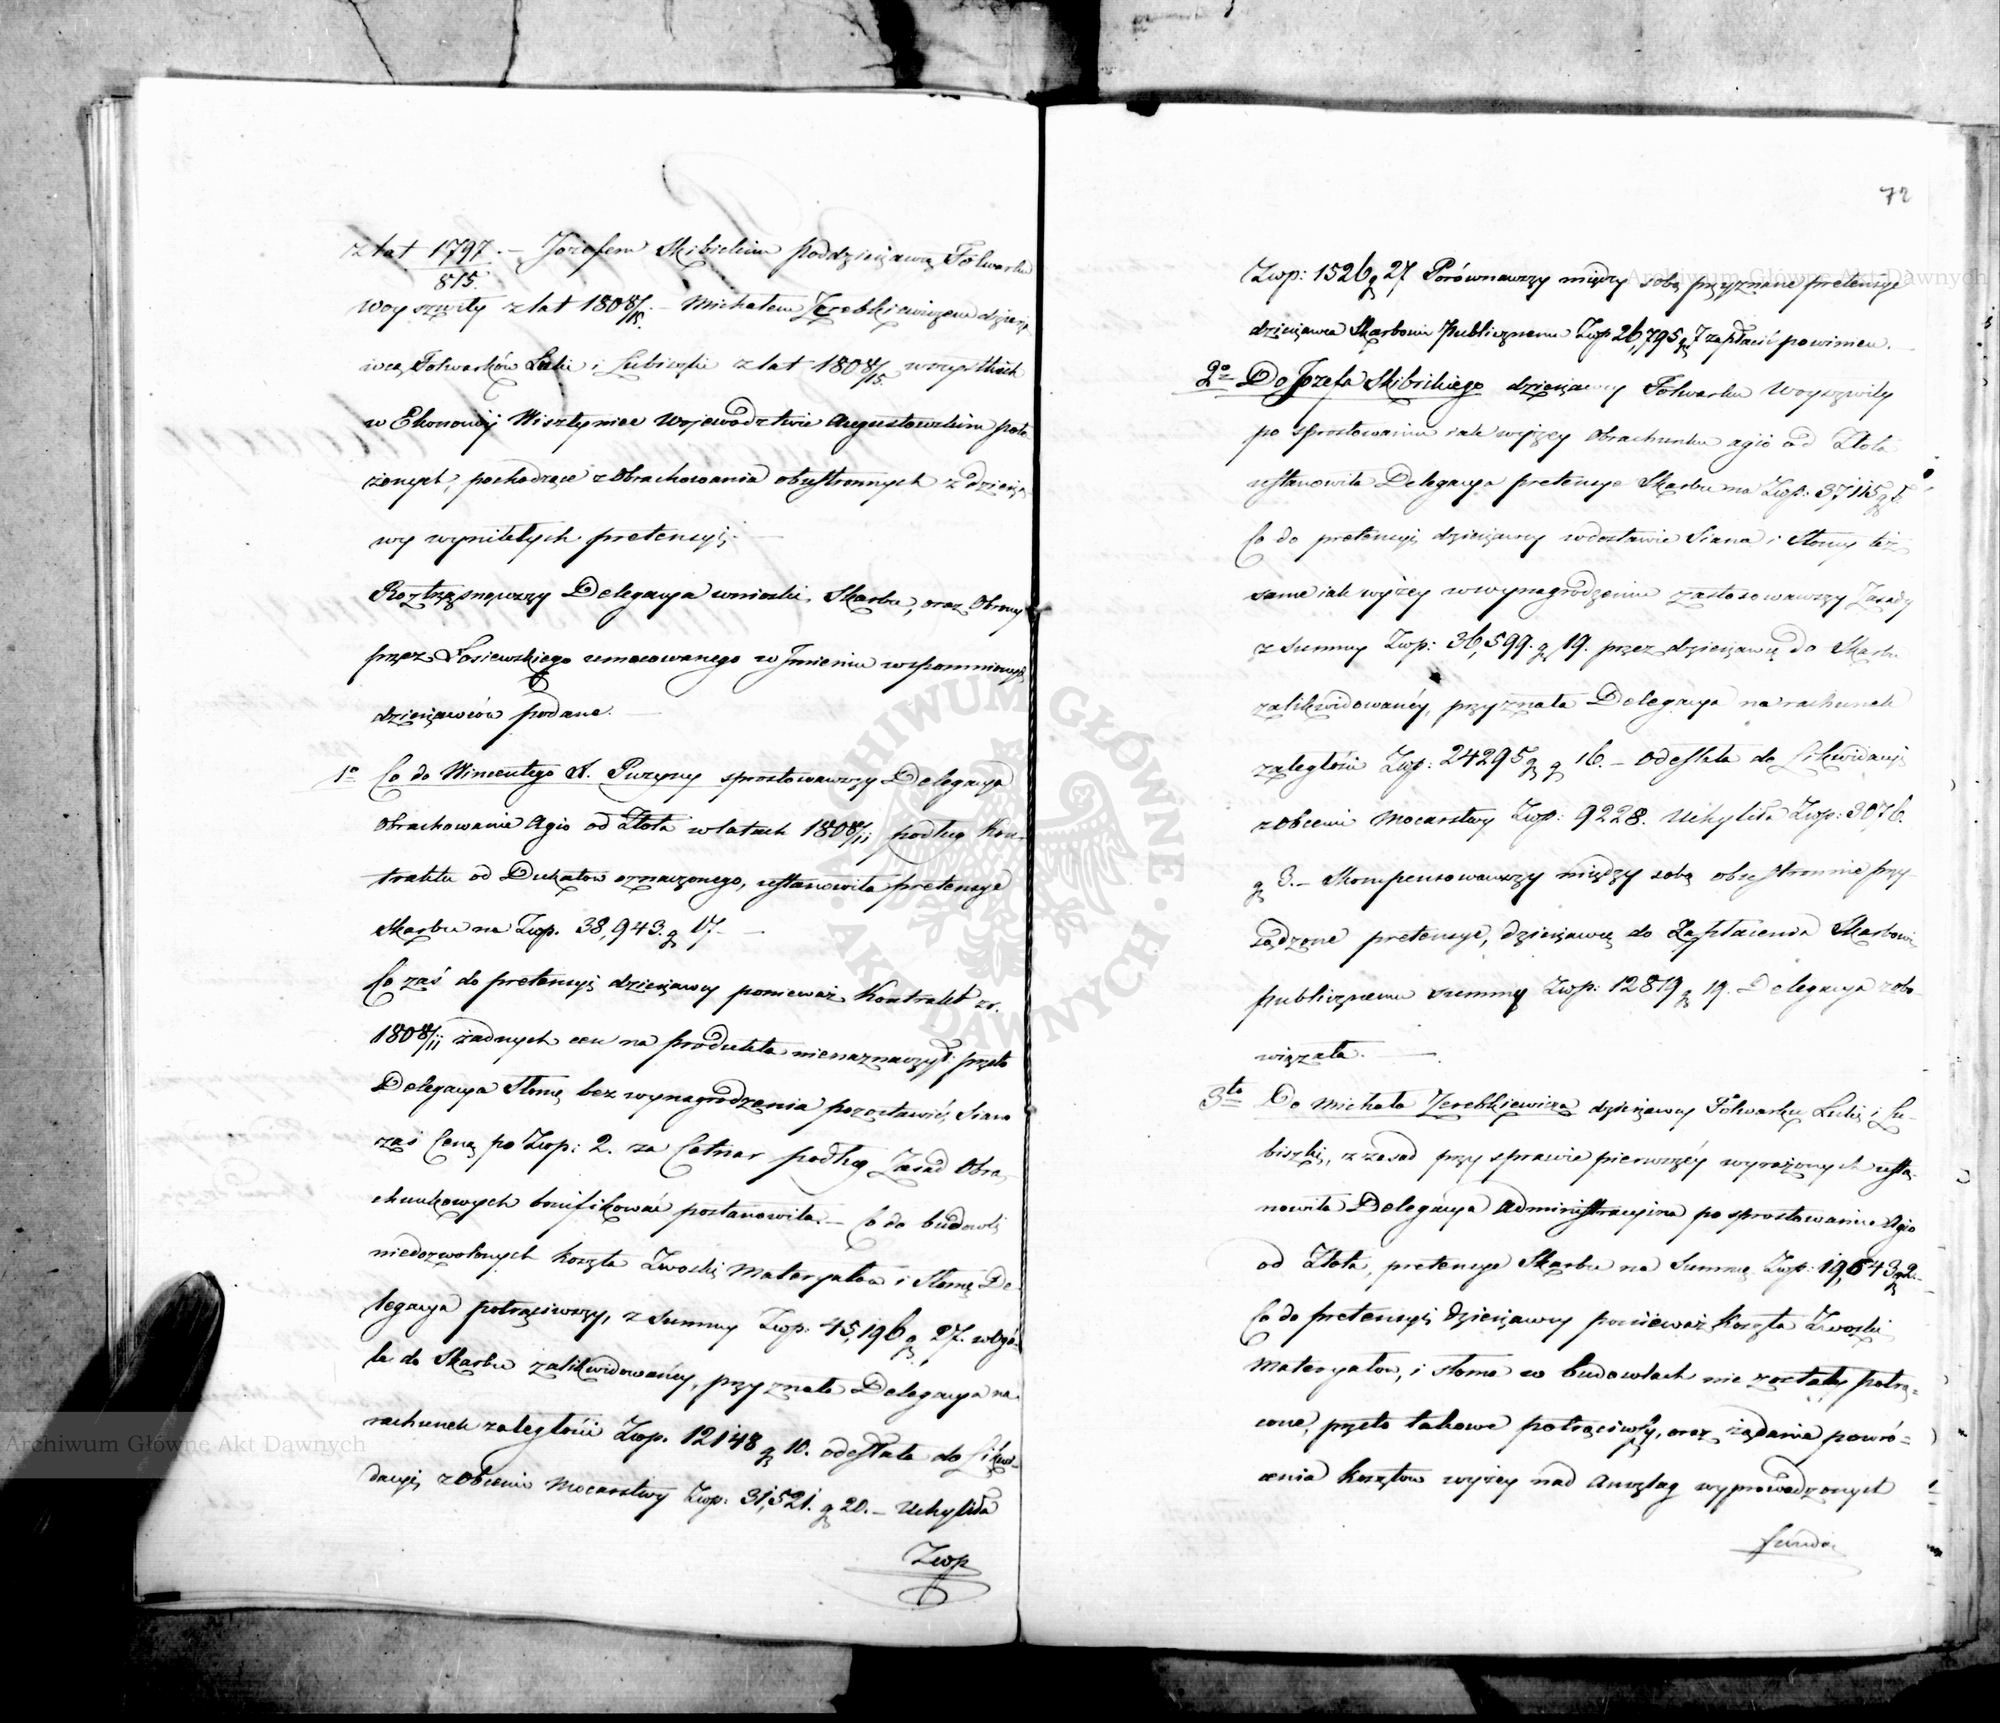 z lat 1797/815. – Jozefem Skibickim poddzierżawcą Folwarku
Woyszwiły z lat 1808/15. – Michałem Zerebkiewiczem dzierża
wcą Folwarków Luki i Lubiszki z lat 1808/15. wszystkich
w Ekonomij Wisztyniec Wojewodztwie Augustowskim poło
żonych, pochodzące z obrachowania obustronnych z dzierża
wy wynikłych pretensyi. –
Roztrząsnąwszy Delegacya wnioski, Skarbu, oraz Obrony
przez Łosiewskiego umocowanego w Imieniu wspomnionych
dzierżawców podane. –
1o Co do Wincentego X. Puzyny sprostowawszy Delegacya
Obrachowanie Agio od Złota w latach 1808/11 podług Kon-
traktu od Dukatów oznaczonego, ustanowiła pretensye
Skarbu na Zwp. 38,943. g 17. –
Co zaś do pretensyi dzierżawcy ponieważ Kontrakt z r.
1808/11 żadnych cen na produkta nienaznaczył: przeto
Delegacya Słomę bez wynagrodzenia pozostawić, Siano
zaś Ceną po Zwp: 2. za Cetnar podług Zasad Obra
chunkowych bonifikować postanowiła. – Co do budowli
niedozwolonych koszta Zwoski Materyałów i Słomę De
legacya potrąciwszy, z Summy Zwp: 45,196 g 27. wogó-
le do Skarbu zalikwidowanéy, przyznała Delegacya na
rachunek zaległości Zwp. 12148 g 10. odesłała do Likwi-
dacyi z Obcemi Mocarstwy Zwp: 31,521. g 20. – Uchyliła
Zwp
72
Zwp: 1526 g 27. Porównawszy między sobą przyznane pretensye
dzierżawca Skarbowi Publicznemu Zwp 26,795 g 7 zapłacić powinien.
2o Do Jozefa Skibickiego dzierżawcy Folwarku Woyszwiły
po sprostowaniu iak wyżey Obrachunku agio od Złota
ustanowiła Delegacya pretensye Skarbu na Zwp: 37115 g 5.
Co do pretensyi dzierżawcy w dostawie Siana i Słomy też
same iak wyżey w wynagrodzeniu zastosowawszy Zasady
z Summy Zwp: 36,599. g 19. przez dzierżawcę do Skarbu
zalikwidowanéy, przyznała Delegacya na rachunek
zaległości Zwp: 24295 g 16. – Odesłała do Likwidacyi
z Obcemi Mocarstwy Zwp: 9228. Uchyliła Zwp: 3076.
g 3. – Skompensowawszy między sobą obustronnie przy-
sądzone pretensye, dzierżawcę do Zapłacenia Skarbowi
publicznemu summy Zwp: 12819 g 19. Delegacya zobo-
wiązała. –
3to Do Michała Zerebkiewicza dzierżawcy Folwarku Luki i Lu-
biszki, z zasad przy sprawie pierwszéy wyrażonych usta-
nowiła Delegacya Administracyina po sprostowaniu Agio
od Złota, pretensye Skarbu na Summę Zwp: 19,643 g 2. –
Co do pretensyi Dzierżawcy ponieważ Koszta Zwoski
Materyałów, i słoma w budowlach nie zostały potrą-
cone, przeto takowe potrąciwszy, oraz żądanie powró-
cenia kosztów wyżey nad Anszlag wyprowadzonych